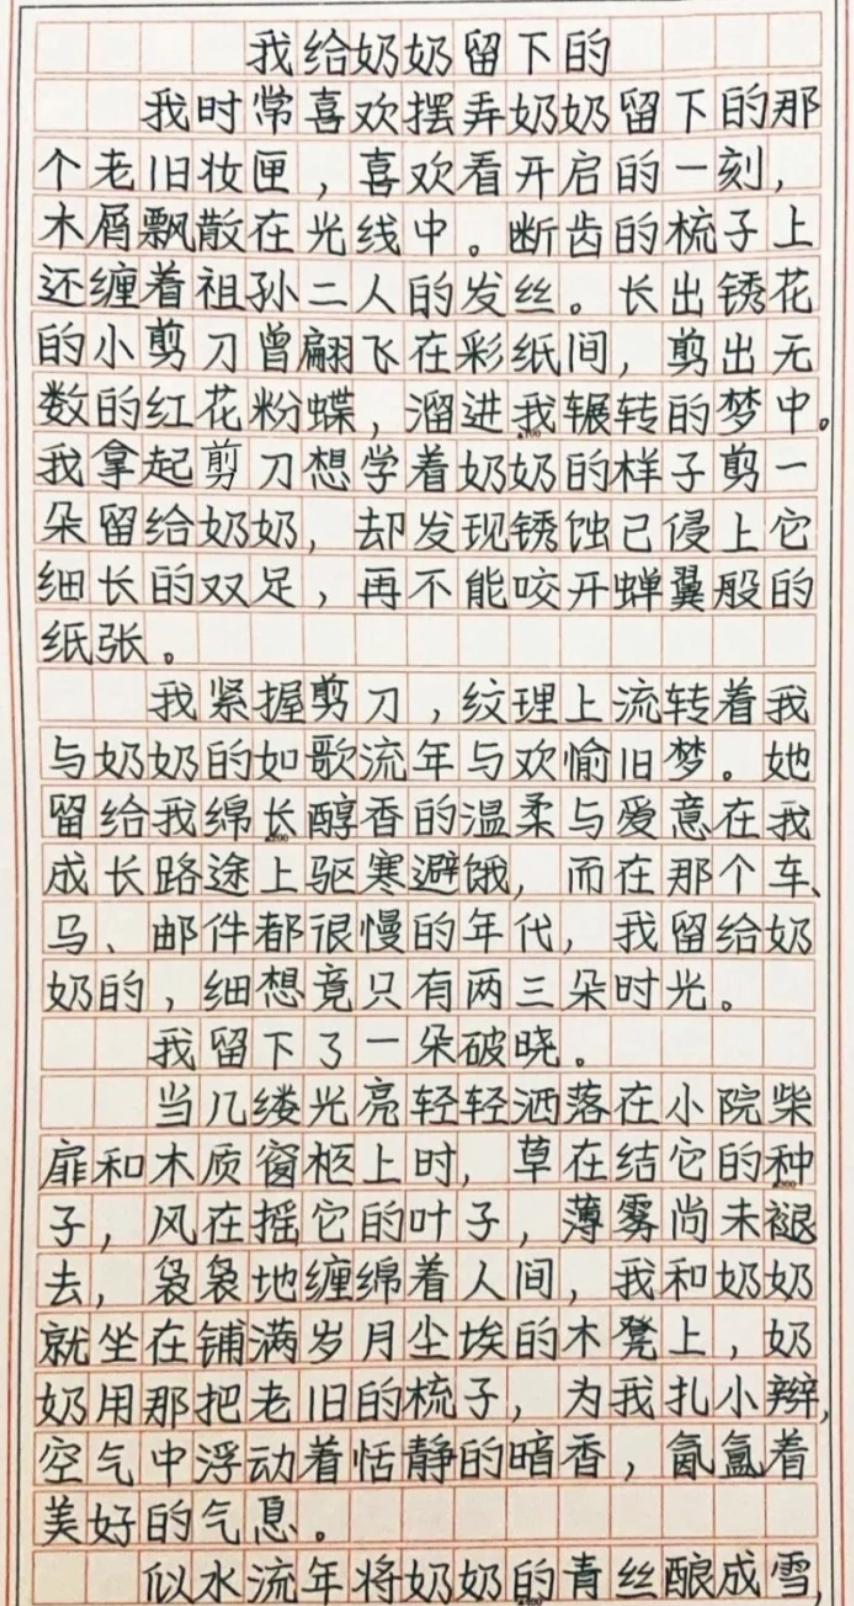 我给奶奶留下的
我时常喜欢摆弄奶奶留下的那
个老旧妆匣，喜欢看开启的一刻，
木屑飘散在光线中。断齿的梳子上
还缠着祖孙二人的发丝。长出锈花
的小剪刀曾翩飞在彩纸间，剪出无
数的红花粉蝶，溜进我辗转的梦中。
我拿起剪刀想学着奶奶的样子剪一
朵留给奶奶，却发现锈蚀已侵上它
细长的双足，再不能咬开蝉翼般的
纸张。
我紧握剪刀，纹理上流转着我
与奶奶的如歌流年与欢愉旧梦。她
留给我绵长醇香的温柔与爱意在我
成长路途上驱寒避饿，而在那个车、
马、邮件都很慢的年代，我留给奶
奶的，细想竟只有两三朵时光。
我留下了一朵破晓。
当几缕光亮轻轻洒落在小院柴
扉和木质窗柩上时，草在结它的种
子，风在摇它的叶子，薄雾尚未褪
去，袅袅地缠绵着人间，我和奶奶
就坐在铺满岁月尘埃的木凳上，奶
奶用那把老旧的梳子，为我扎小辫，
空气中浮动着恬静的暗香，氤氲着
美好的气息。
似水流年将奶奶的青丝酿成雪，